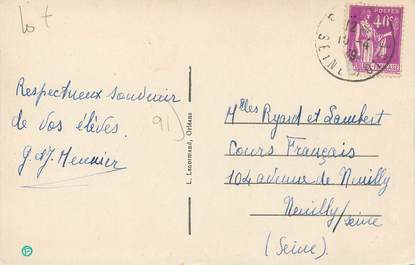 Lot
Respectueux souvenir
de vos élèves.
G. et J. Meunier
91)
L. Lenormand, Orléans
POSTES
40c
Mlles Ryard et Lambert
Cours Français
104 avenue de Neuilly
Neuilly/seine
(Seine).